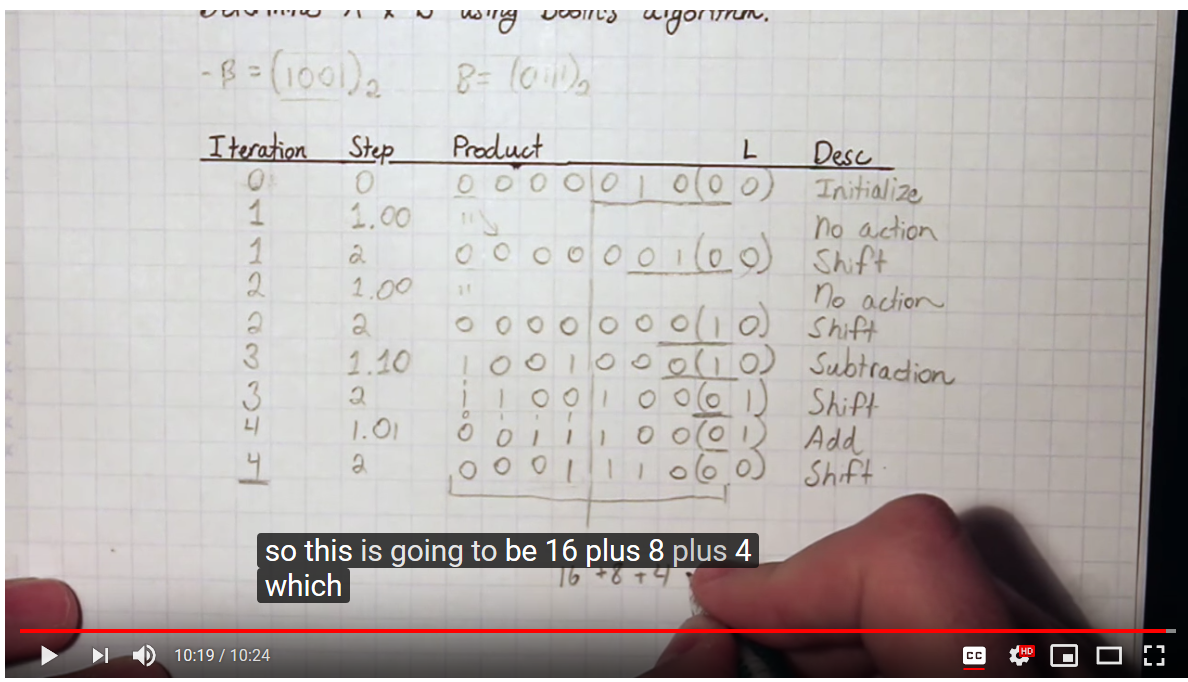 using Booth's algorithm.
-B = (1001)₂ B = (0111)₂
Iteration Step Product L Desc
0 0 0 0 0 0 0 1 0 (0 0) Initialize
1 1.00 " No action
1 2 0 0 0 0 0 0 1 (0 0) Shift
2 1.00 " No action
2 2 0 0 0 0 0 0 0 (1 0) Shift
3 1.10 1 0 0 1 0 0 0 (1 0) Subtraction
3 2 1 1 0 0 1 0 0 (0 1) Shift
4 1.01 0 0 1 1 1 0 0 (0 1) Add
4 2 0 0 0 1 1 1 0 (0 0) Shift
so this is going to be 16 plus 8 plus 4
which
16 + 8 + 4
10:19 / 10:24
CC HD